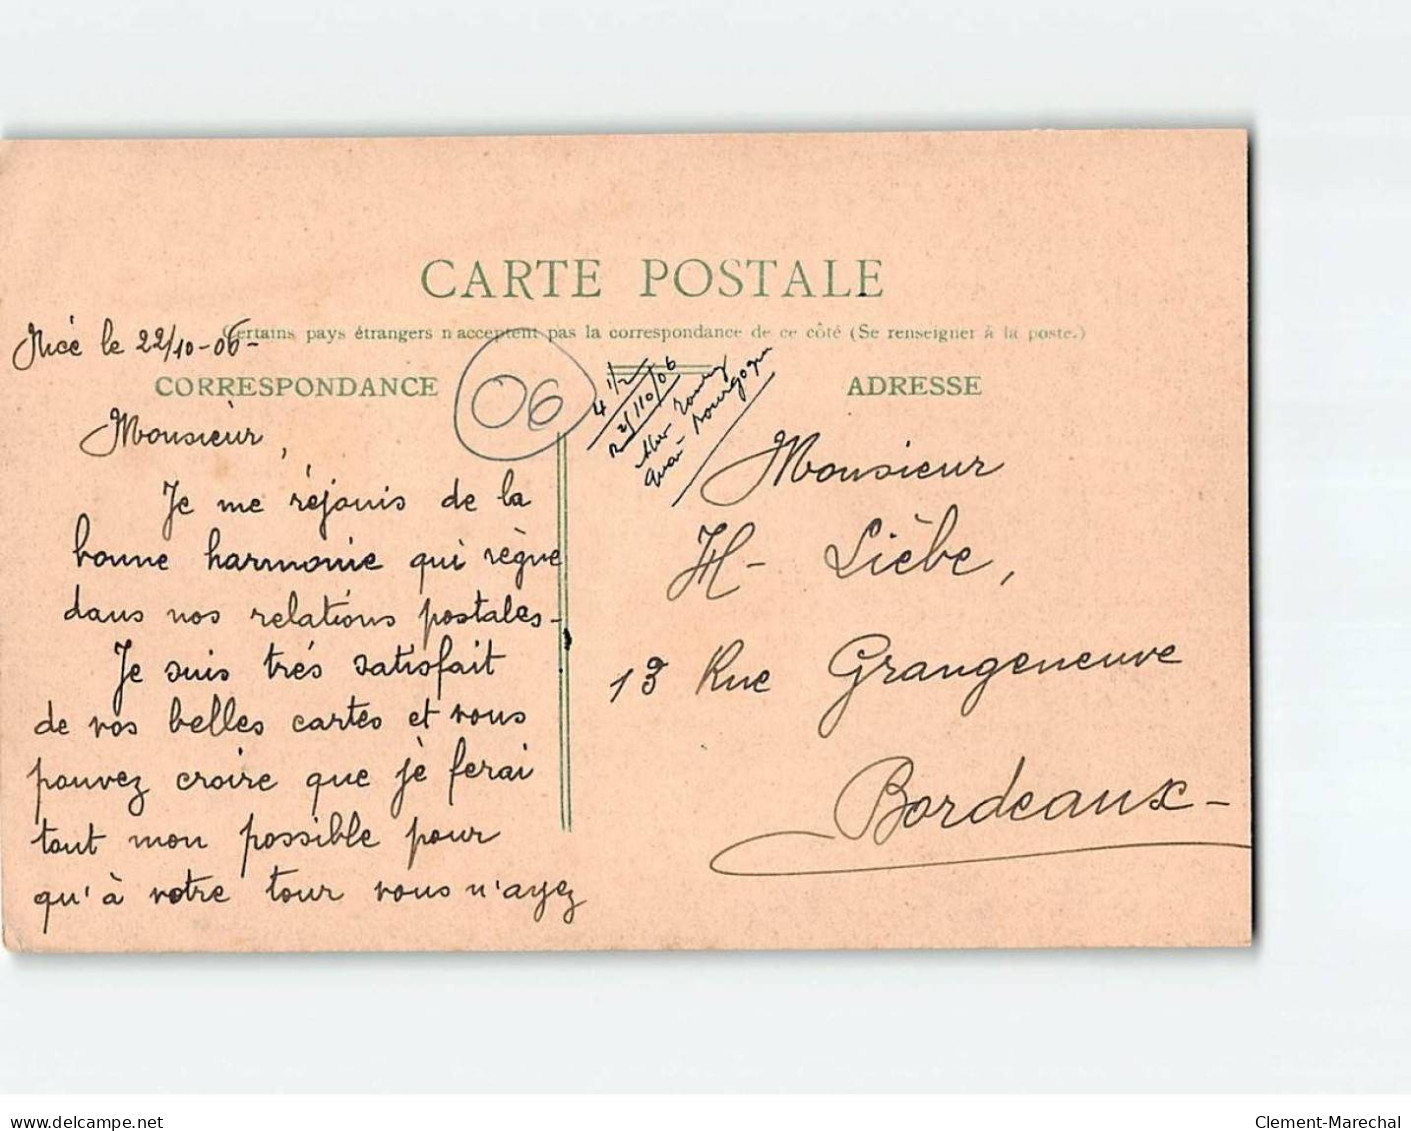 CARTE POSTALE
Certains pays étrangers n'acceptent pas la correspondance de ce côté (Se renseigner à la poste.)
Nice le 22/10-06-
CORRESPONDANCE
06
Monsieur,
Je me réjouis de la
bonne harmonie qui règne
dans nos relations postales-
Je suis très satisfait
de vos belles cartes et vous
pouvez croire que je ferai
tout mon possible pour
qu'à votre tour vous n'ayez
4 1/2
R 2/110/06
ADRESSE
Monsieur
H- Lièbe,
13 Rue Grangeneuve
Bordeaux-
www.delcampe.net
Clement-Marechal